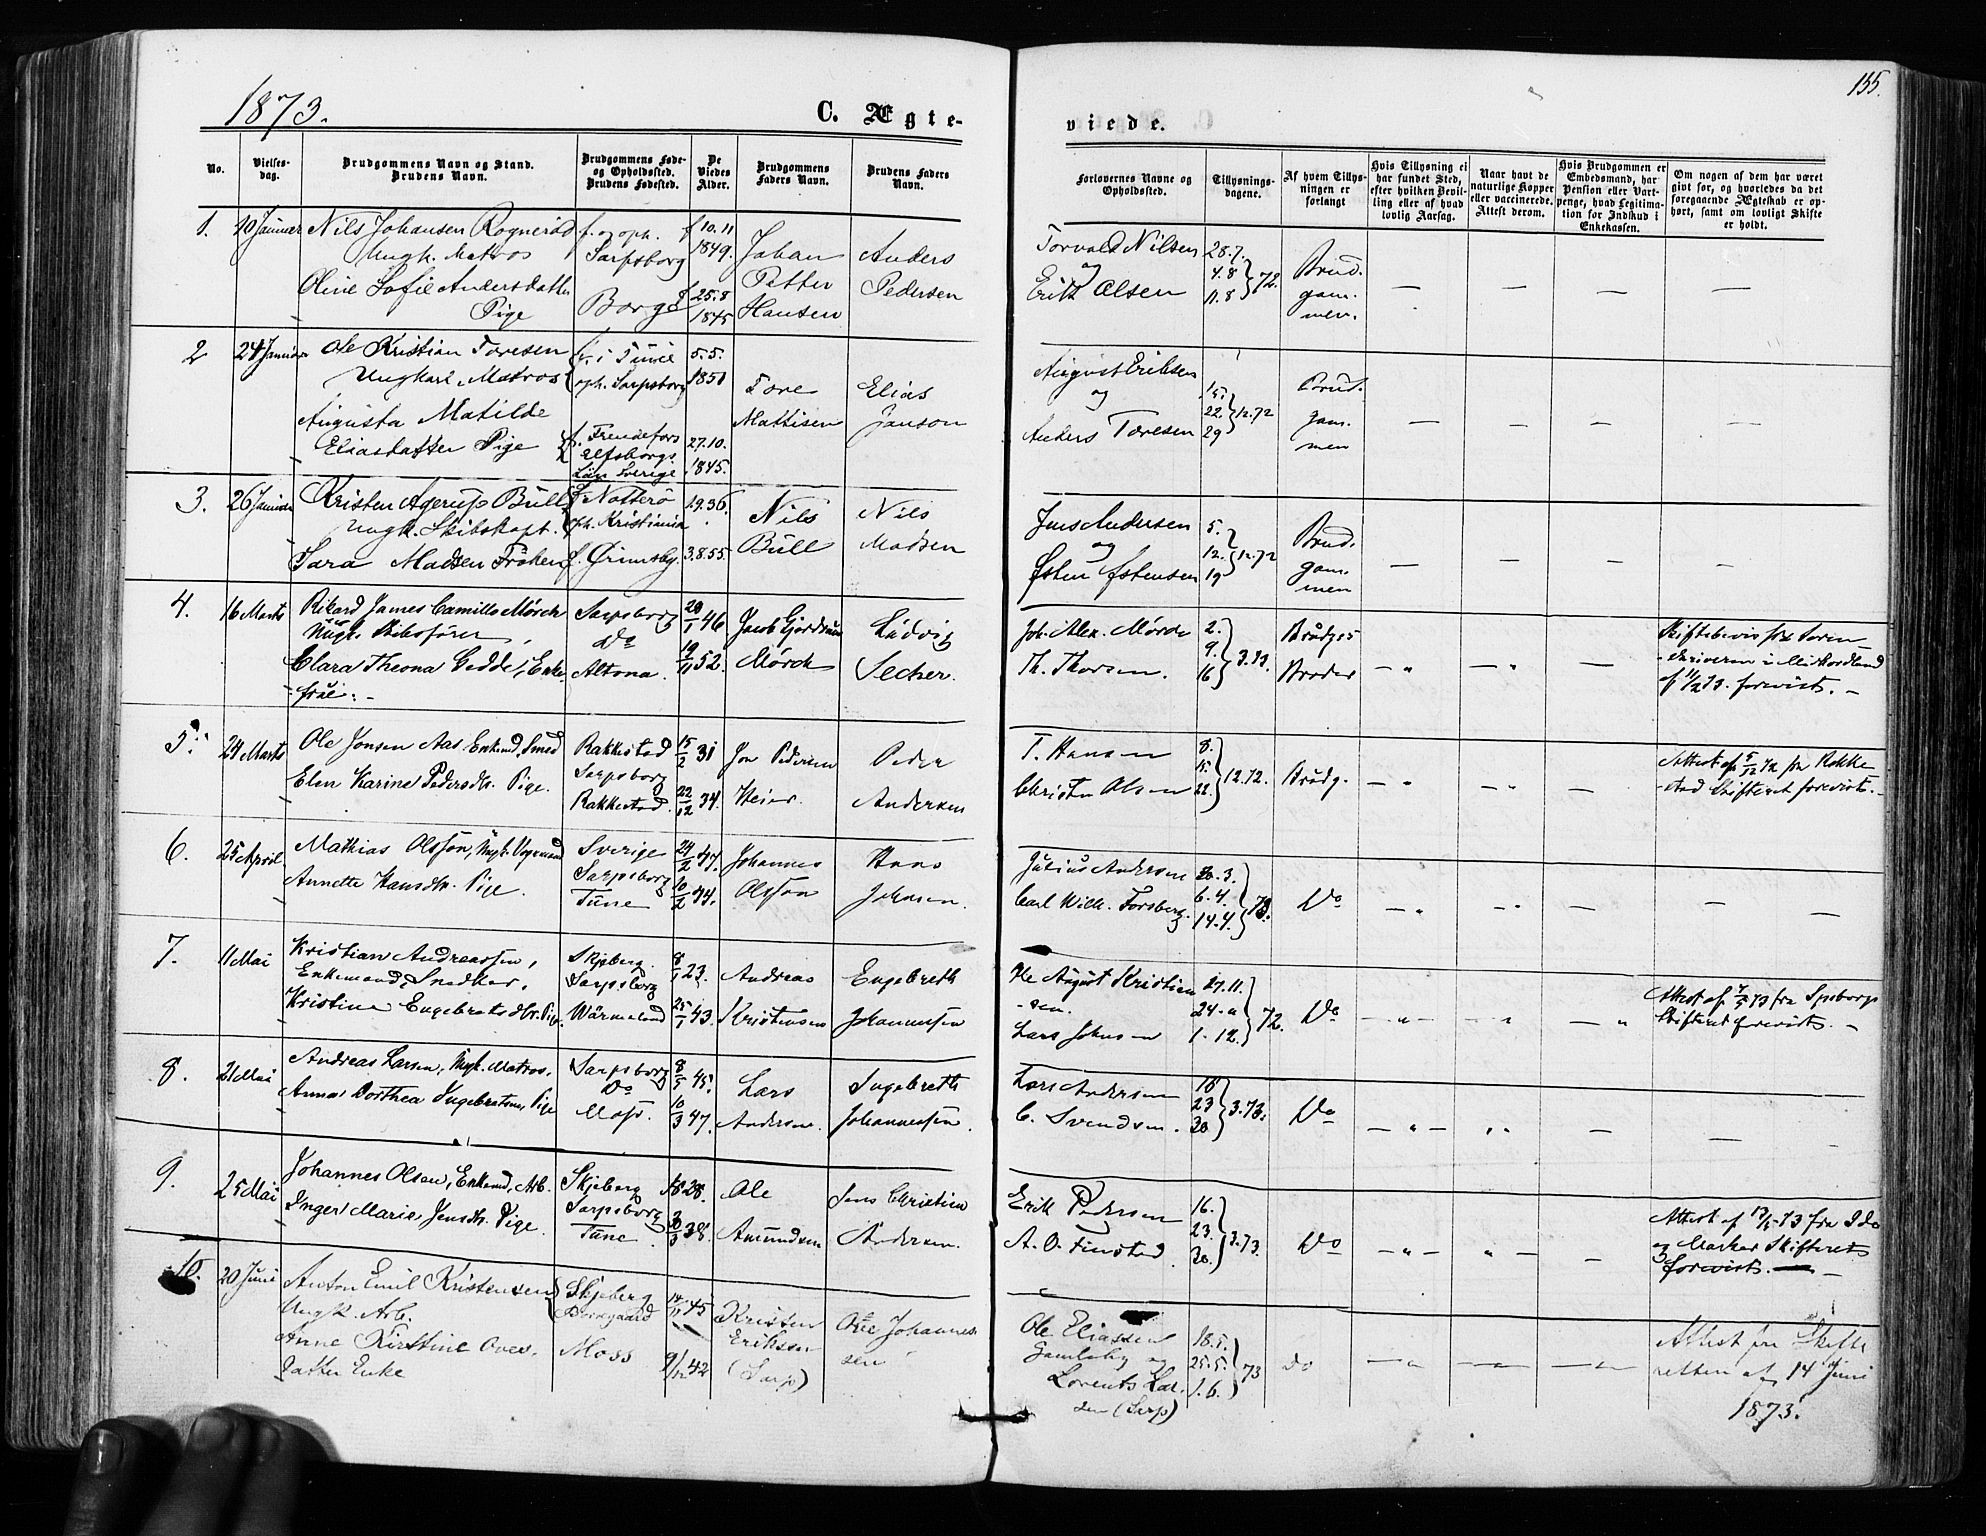 1873.
C. Ægte-
viede.
155.
No.
Vielses-
dag.
Brudgommens Navn og Stand.
Brudens Navn.
Brudgommens Føde-
og Opholdssted.
Brudens Fødested.
De
Viedes
Alder.
Brudgommens
Faders Navn.
Brudens Faders
Navn.
Forlovernes Navne og
Opholdssted.
Tillysnings-
dagene.
Af hvem Tillys-
ningen er
forlangt
Hvis Tillysning ei
har fundet Sted,
efter hvilken Bevil-
ling eller af hvad
lovlig Aarsag.
Naar havt de
naturlige Kopper
eller vaccinerede.
Attest derom.
Hvis Brudgommen er
Embedsmand, har
Pension eller Vart-
penge, hvad Legitima-
tion for Indskud i
Enkekassen.
Om nogen af dem har været
givt før, og hvorledes da det
foregaaende Ægteskab er op-
hørt, samt om lovligt Skifte
er holdt.
1.
10 Januar
Nils Johansen Rognerød
Ungk. Matros
Oline Sofie Andersdatter
Pige
f. og oph.
Sarpsborg
Borge
f 10.11
1849.
f 25.8
1845
Johan
Petter
Hansen
Anders
Pedersen
Torvald Nilsen
og
Erik Olsen
28.7.
4.8
11.8
72.
Brud-
gom-
men.
2
24 Januar
Ole Kristian Toresen
Ungkarl Matros
Augusta Matilde
Eliasdatter Pige
f. i Tune
oph. Sarpsborg
f. Frendefors
Elfsborgs
Län Sverige
5.5.
1851
27.10.
1845.
Tore
Mattisen
Elias
Janson
August Eriksen
og
Anders Toresen
15.
22.
29
12.72
Brud-
gom-
men
3.
26 Januar
Kristen Agerup Bull
Ungk. Skibskapt.
Sara Madsen Frøken
f. Nøtterø
oph. Kristiania
f. Grimsby.
19.36.
3.8.55.
Nils
Bull
Nils
Madsen
Jens Andersen
og
Østen Østensen
5.
12.
19
12.72
Brud-
gom-
men
4.
16 Marts
Rikard James Camillo Mörch
Ungk. Skibsfører
Clara Theona Gedde, Enke-
frue.
Sarpsborg
Do
Altona.
46
52.
Jacob Gjordsum
Mörch
Ludvig
Secher.
Joh. Alex. Mörch
Th. Thorsen.
2.
9.
16
3.73.
Brudgs
Broder
Skiftebevis fra Soren-
skriveren i Mi Nordland
af 11/2 73. forevist.
5.
24 Marts
Ole Jonsen Aas Enkemd, Smed
Elen Karine Pedersdr. Pige.
Rakkestad
Sarpsborg
Rakkestad.
15/2 31
22/12 34.
Jon Pedersen
Heier.
Peder
Andersen
T. Hansen
Christen Olsen
8.
15.
22.
12.72.
Brudg.
Attest af 5/12 72 fra Rakke-
stad Skifteret forevist.
6.
25 April.
Mathias Olsson, Ungk. Vognmand
Annette Hansdtr. Pige.
Sverige
Sarpsborg
Tune
24/2 47.
10/2 44.
Johannes
Olsson
Hans
Johnsen.
Julius Andersen
Carl Wilh. Forsberg.
30.3.
6.4.
14.4.
73.
Do
7.
11 Mai
Kristian Andreassen,
Enkemand, Snedker.
Kristine Engebretsdtr. Pige.
Skjeberg.
Sarpsborg
Wärmeland
8/1 23.
25/1 43.
Andreas
Kristensen
Engebreth
Johannesen
Ole August Kristian-
sen.
Lars Johnsen
17.11.
24. "
1. 12.
72.
Do
Attest af 7/5 73 fra Spsborgs
Skifteret forevist.
8.
21 Mai
Andreas Larsen, Ungk. Matros.
Anna Dorthea Ingebretsen, Pige
Sarpsborg
Do
Moss.
8/5 45.
10/3 47.
Lars
Andersen.
Ingebreth
Johannessen.
Lars Andersen
C. Svendsen.
16
23
30
3.73.
Do
9.
25 Mai
Johannes Olsen, Enkemd, Arb.
Inger Marie Jensdtr. Pige.
Skjeberg
Sarpsborg
Tune
28.
38.
Ole
Amundsen
Jens Christian
Andersen.
Erik Pedersen
A. O. Finstad.
16.
23.
30.
3.73.
Do
Attest af 17/5 73 fra Ide
og Marker Skifteret
forevist.
10.
20 Juni
Anton Emil Kristensen
Ungk. Arb.
Anne Kirstine Oves-
datter Enke
Skjeberg
Borregaard
Moss
14/11 45
9/12 42
Kristen
Eriksen
(Sarp)
Ove Johannes-
sen
Ole Eliassen
Gamleby og
Lorents Lar-
sen (Sarp)
18.5.
25.5.
1.6.
73
do
Attest fra Skifte
retten af 14 Juni
1873.